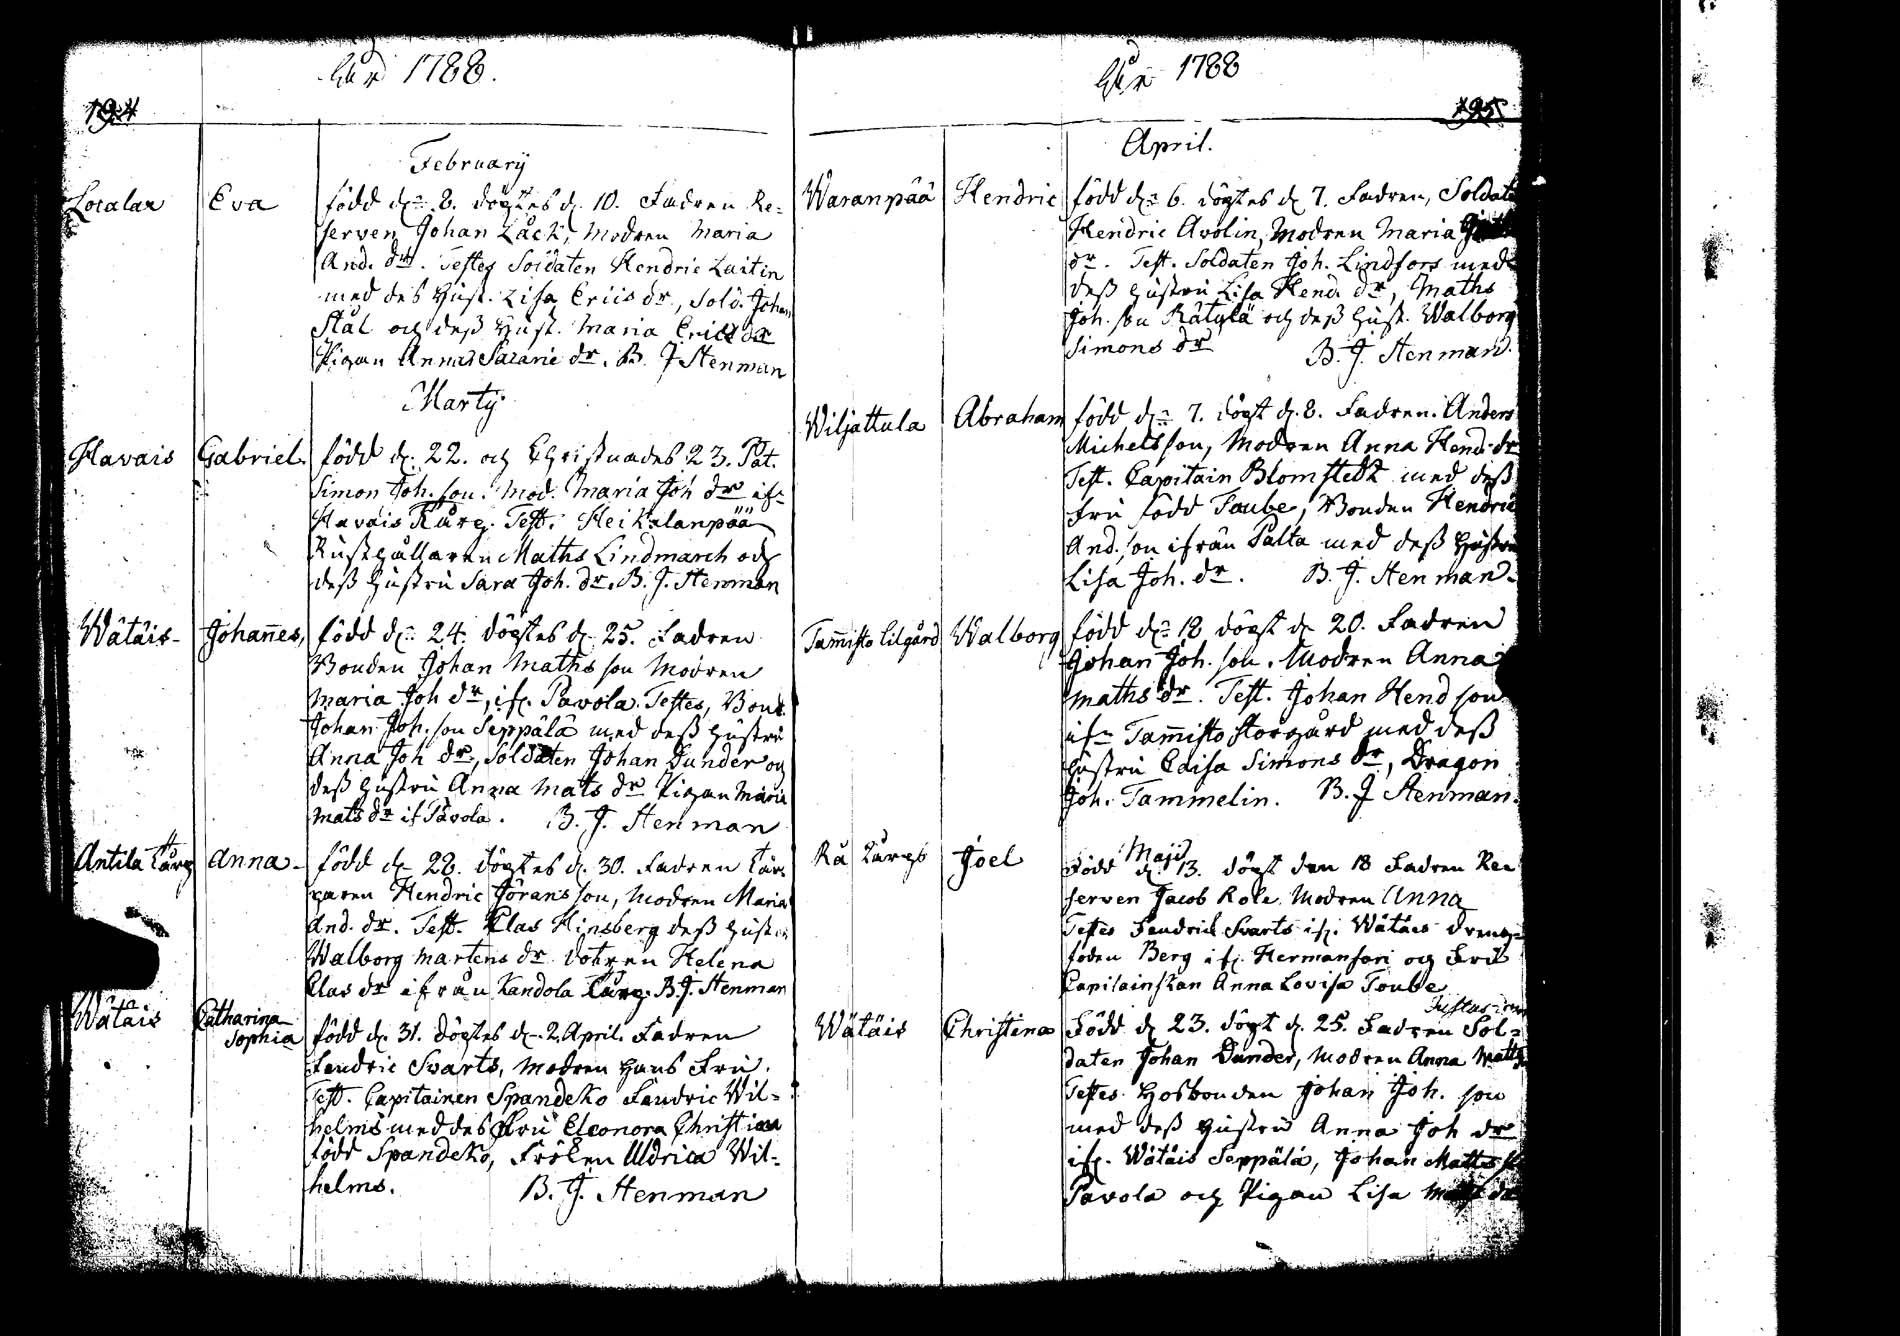 Åhr 1788.
194
February
Localax Eva född dn 8. dögtes d. 10. Fadren Re=
serven Johan Läck, Modren Maria
And. dr. Testes Soldaten Hendric Laitin
med des Hust. Lisa Erics dr, Sold. Johan
Stål och dess Hust. Maria Erics dr
Pigan Anna dr. B. J Stenman
Martij
Havais Gabriel född d. 22. och Christnades 23. Pat.
Simon Joh. son. Mod. Maria Joh dr if
Havais Test. Heikalanpää
Rusthållaren Maths Lindmarch och
dess Hustru Sara Joh. dr. B. J. Stenman
Wätäis Johannes, född dn 24. dögtes d. 25. Fadren
Bonden Johan Maths son Modren
Maria Joh dr, if. Pavola. Testes, Bond.
Johan Joh. son Seppälä med dess Hustru
Anna Joh dr, Soldaten Johan Dunder och
dess Hustru Anna Mats dr Pigan Maria
Mats dr if Pavola. B. J. Stenman
Antila Anna född d. 28. dögtes d. 30. Fadren
Hendric Jörans son, Modren Maria
And. dr. Test. Clas Hinsberg dess Hustru
Walborg Martens dr dotren Helena
Clas dr ifrån Kandola B. J. Stenman
Wätäis Catharina
Sophia född d. 31. dögtes d. 2. April. Fadren
Fendric Svarts, Modren Hans Fru.
Test. Capitainen Spandeko Fendric Wil=
helms med des Fru Eleonora Christiana
född Spandeko, Fröken Uldrica Wil=
helms. B. J. Stenman
Åhr 1788
195
April.
Waranpää Hendric född dn 6. dögtes d 7. Fadren, Soldat
Hendric Avolin, Modren Maria
dr. Test. Soldaten Joh. Lindfors med
dess Hustru Lisa Hend. dr, Maths
Joh. son Rätylä och dess Hust. Walborg
Simons dr B. J. Stenman.
Wiljattula Abraham född dn 7. dögt d. 8. Fadren. Anders
Michelsson, Modren Anna Hend. dr
Test. Capitain Blomstedt med dess
Fru född Taube, Bonden Hendric
And. son ifrån Palta med dess Hustru
Lisa Joh. dr. B. J. Stenman.
Tammisto Lilgård Walborg född dn 18 dögt d 20. Fadren
Johan Joh. son. Modren Anna
Maths dr. Test. Johan Hend son
ifn Tammisto Storgård med dess
Hustru Caisa Simons dr, Dragon
Joh. Tammelin. B. J Stenman.
Maji
Joel Född d. 13. dögt den 18 Fadren Re
serven Jacob Role. Modren Anna
Testes Fendrick Svarts if. Wätäis
Berg if. Hermansari och Fru
Capitainskan Anna Lovisa Toube
Wätäis Christena Född d 23. dögt d. 25. Fadren Sol=
daten Johan Dunder, Modren Anna Matts
Testes Hosbonden Johan Joh. son
med dess Hustru Anna Joh dr
if. Wätäis Seppälä, Johan Matts
Pavola och Pigan Lisa